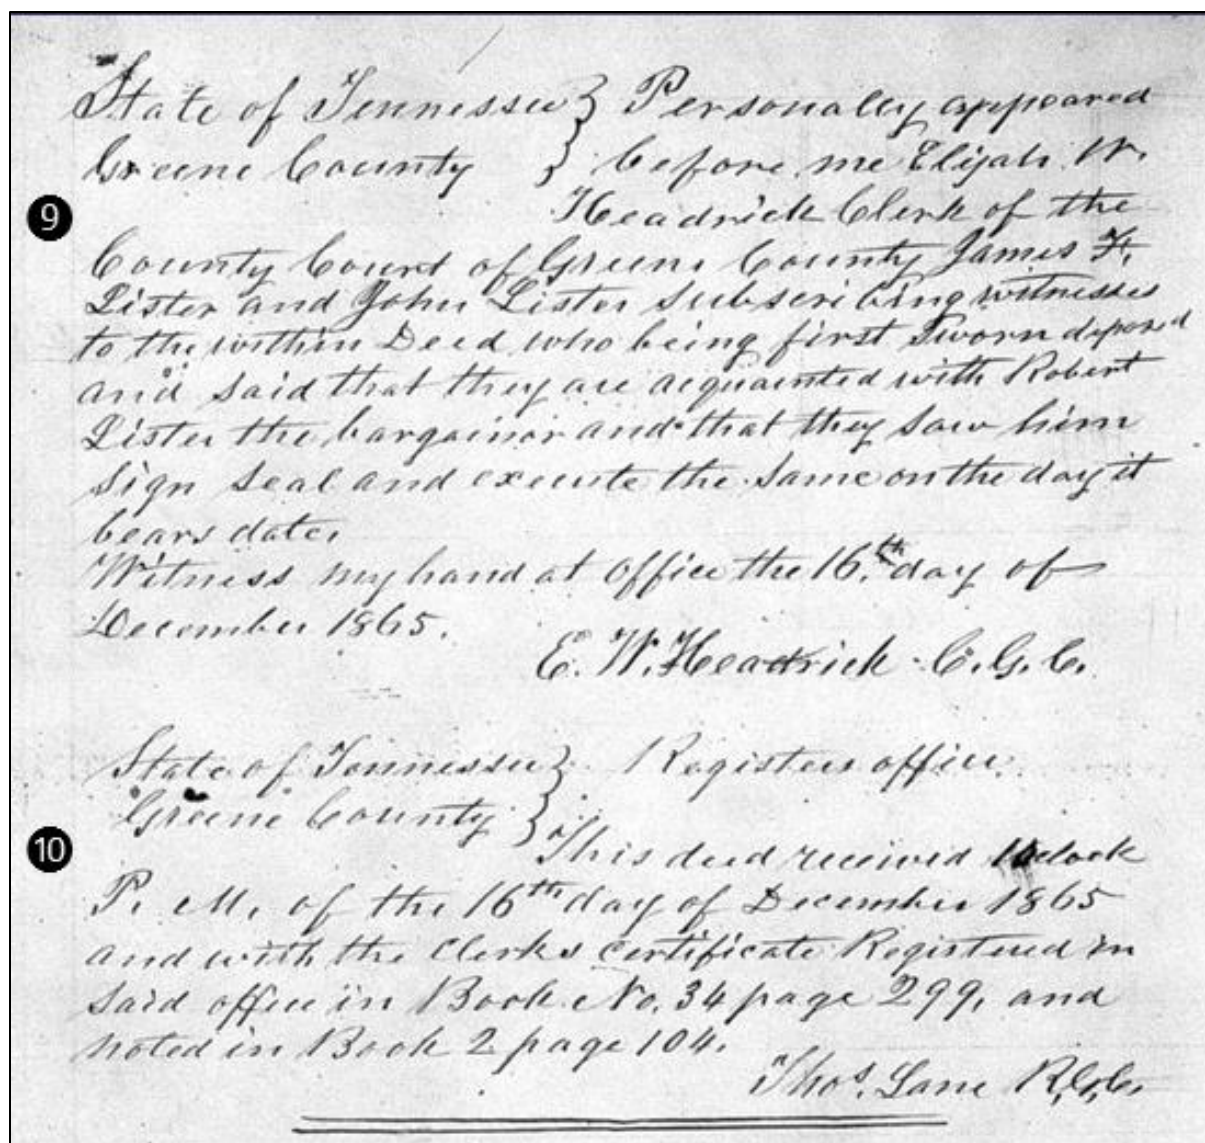 State of Tennessee } Personally appeared
Greene County } before me Elijah W.
Headrick Clerk of the
9
County Court of Greene County James F.
Lister and John Lister Subscribing witnesses
to the within Deed who being first Sworn deposed
and said that they are acquainted with Robert
Lister the bargainor and that they saw him
sign seal and execute the same on the day it
bears date.
Witness my hand at office the 16.th day of
December 1865.
E. W. Headrick C. G. C.
State of Tennessee } Registers office.
Greene County }
10
This deed received oclock
P. M. of the 16th day of December 1865
and with the Clerks Certificate Registered in
said office in Book No. 34 page 299, and
noted in Book 2 page 104.
Thos. Lane R.G.C.